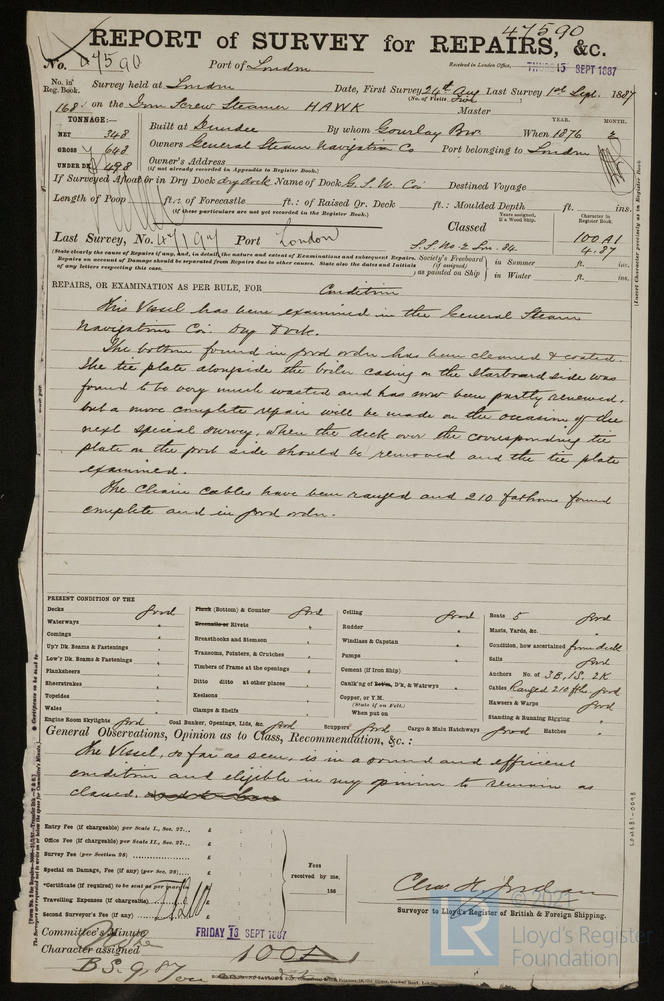 47590
REPORT of SURVEY for REPAIRS, &c.
No. 47590 Port of London Received in London Office, THURS 15 SEPT 1887
No. in Reg. Book. Survey held at London Date, First Survey 24th Aug Last Survey 1st Sept. 1887
(No. of Visits Five)
168 on the Iron Screw Steamer HAWK Master
TONNAGE:— Built at Dundee By whom Gourlay Bros. When 1876 YEAR. MONTH. 2
NET 348
GROSS 648 Owners General Steam Navigation Co Port belonging to London
UNDER DK 498 Owner's Address
(if not already recorded in Appendix to Register Book.)
If Surveyed Afloat or in Dry Dock dry dock Name of Dock G. S. N. Co's Destined Voyage
Length of Poop ft.: of Forecastle ft.: of Raised Qr. Deck ft.: Moulded Depth ft. ins.
(if these particulars are not yet recorded in the Register Book.) Years assigned, if a Wood Ship. Character in Register Book.
Classed 100 A1
Last Survey, No. Port London S.S. No. 2 Lon. 84. 4.87
(State clearly the cause of Repairs if any, and, in detail, the nature and extent of Examinations and subsequent Repairs. Repairs on account of Damage should be separated from Repairs due to other causes. State also the dates and Initials of any letters respecting this case.
Society's Freeboard (if assigned) as painted on Ship in Summer ft. ins.
in Winter ft. ins.
(Insert Character precisely as in Register Book)
REPAIRS, OR EXAMINATION AS PER RULE, FOR Condition
This Vessel has been examined in the General Steam
Navigations Co's Dry Dock.
The bottom found in good order has been cleaned & coated.
The tie plate alongside the boiler casing on the starboard side was
found to be very much wasted and has now been partly renewed,
but a more complete repair will be made on the occasion of the
next special survey, when the deck over the corresponding tie
plate on the port side should be removed and the tie plate
examined.
The chain cables have been ranged and 210 fathoms found
complete and in good order.
PRESENT CONDITION OF THE
Decks good
Waterways "
Comings "
Up'r Dk. Beams & Fastenings "
Low'r Dk. Beams & Fastenings "
Planksheers
Sheerstrakes "
Topsides "
Wales "
Engine Room Skylights good
Plank (Bottom) & Counter good
Treenails or Rivets "
Breasthooks and Stemson "
Transoms, Pointers, & Crutches "
Timbers of Frame at the openings "
Ditto ditto at other places "
Keelsons "
Clamps & Shelfs "
Coal Bunker, Openings, Lids, &c. good
Ceiling good
Rudder "
Windlass & Capstan "
Pumps "
Cement (if Iron Ship) "
Caulk'ng of Bot'm, D'k, & Watrwys "
Copper, or Y.M.
(State if on Felt.)
When put on
Scuppers good Cargo & Main Hatchways good Hatches "
Boats 5 good
Masts, Yards, &c. "
Condition, how ascertained from deck
Sails good
Anchors No. of 3B, 1S, 2K
Cables Ranged 210 fths good
Hawsers & Warps good
Standing & Running Rigging "
General Observations, Opinion as to Class, Recommendation, &c.:
The Vessel, so far as seen, is in a sound and efficient
condition and eligible in my opinion to remain as
classed,
Entry Fee (if chargeable) per Scale I., Sec. 27... £
Office Fee (if chargeable) per Scale II., Sec. 27... £
Survey Fee (per Section 28) £
Special on Damage, Fee (if any) (per Sec. 28) £
*Certificate (if required) to be sent as per margin £
Travelling Expenses (if chargeable) £
Second Surveyor's Fee (if any) £
Fees received by me, 188
Chas. H. Jordan
Surveyor to Lloyd's Register of British & Foreign Shipping.
Committee's Minute FRIDAY 13 SEPT 1887
Character assigned 100 A1
B.S. 9.87
© 2021
LR
Lloyd's Register
Foundation